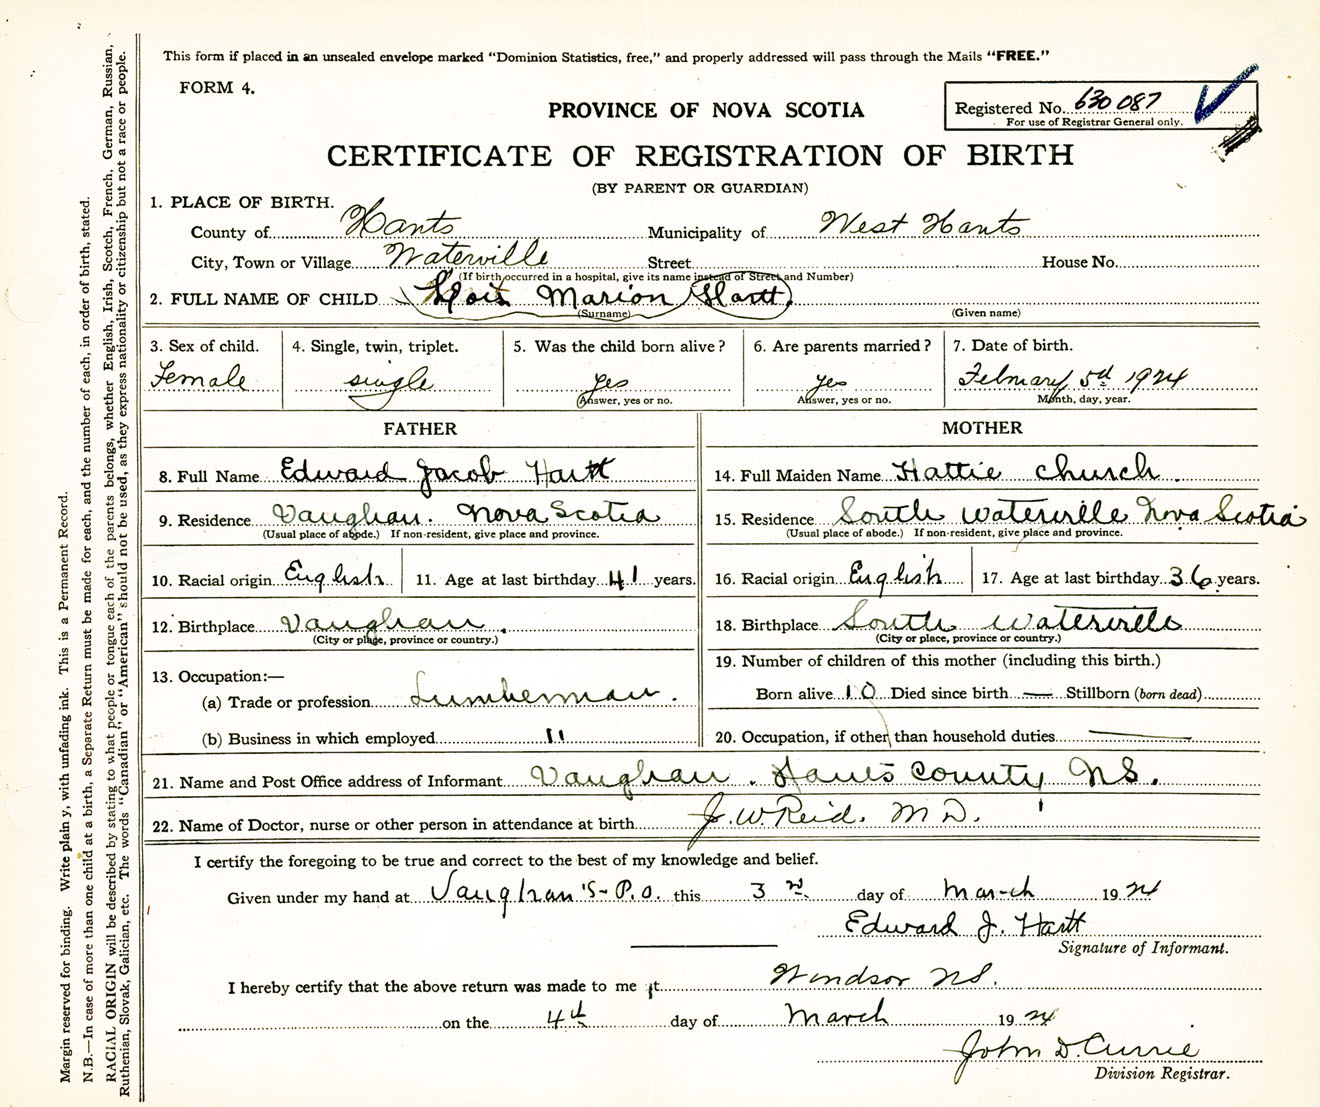 This form if placed in an unsealed envelope marked "Dominion Statistics, free," and properly addressed will pass through the Mails "FREE."
FORM 4.
PROVINCE OF NOVA SCOTIA
Registered No. 630 087
For use of Registrar General only.
CERTIFICATE OF REGISTRATION OF BIRTH
(BY PARENT OR GUARDIAN)
1. PLACE OF BIRTH.
County of Hants Municipality of West Hants
City, Town or Village Waterville Street House No.
(If birth occurred in a hospital, give its name instead of Street and Number)
2. FULL NAME OF CHILD Lois Marion Hartt
(Surname) (Given name)
3. Sex of child. 4. Single, twin, triplet. 5. Was the child born alive? 6. Are parents married? 7. Date of birth.
Female single yes yes February 5th 1924
Answer, yes or no. Answer, yes or no. Month, day, year.
FATHER MOTHER
8. Full Name Edward Jacob Hartt 14. Full Maiden Name Hattie Church.
9. Residence Vaughan. Nova Scotia 15. Residence South Waterville Nova Scotia
(Usual place of abode.) If non-resident, give place and province. (Usual place of abode.) If non-resident, give place and province.
10. Racial origin English 11. Age at last birthday 41 years. 16. Racial origin English 17. Age at last birthday 36 years.
12. Birthplace Vaughan. 18. Birthplace South Waterville
(City or place, province or country.) (City or place, province or country.)
13. Occupation:— 19. Number of children of this mother (including this birth.)
(a) Trade or profession Lumberman. Born alive 10 Died since birth — Stillborn (born dead)
(b) Business in which employed " 20. Occupation, if other than household duties —
21. Name and Post Office address of Informant Vaughan. Hants County N.S.
22. Name of Doctor, nurse or other person in attendance at birth J. W. Reid. M D.
I certify the foregoing to be true and correct to the best of my knowledge and belief.
Given under my hand at Vaughan's- P.O. this 3rd day of March 1924
Edward J. Hartt
Signature of Informant.
I hereby certify that the above return was made to me at Windsor N.S.
on the 4th day of March 1924
John D. Currie
Division Registrar.
Margin reserved for binding. Write plainly, with unfading ink. This is a Permanent Record.
N.B.—In case of more than one child at a birth, a Separate Return must be made for each, and the number of each, in order of birth, stated.
RACIAL ORIGIN will be described by stating to what people or tongue each of the parents belongs, whether English, Irish, Scotch, French, German, Russian,
Ruthenian, Slovak, Galician, etc. The words "Canadian" or "American" should not be used, as they express nationality or citizenship but not a race or people.